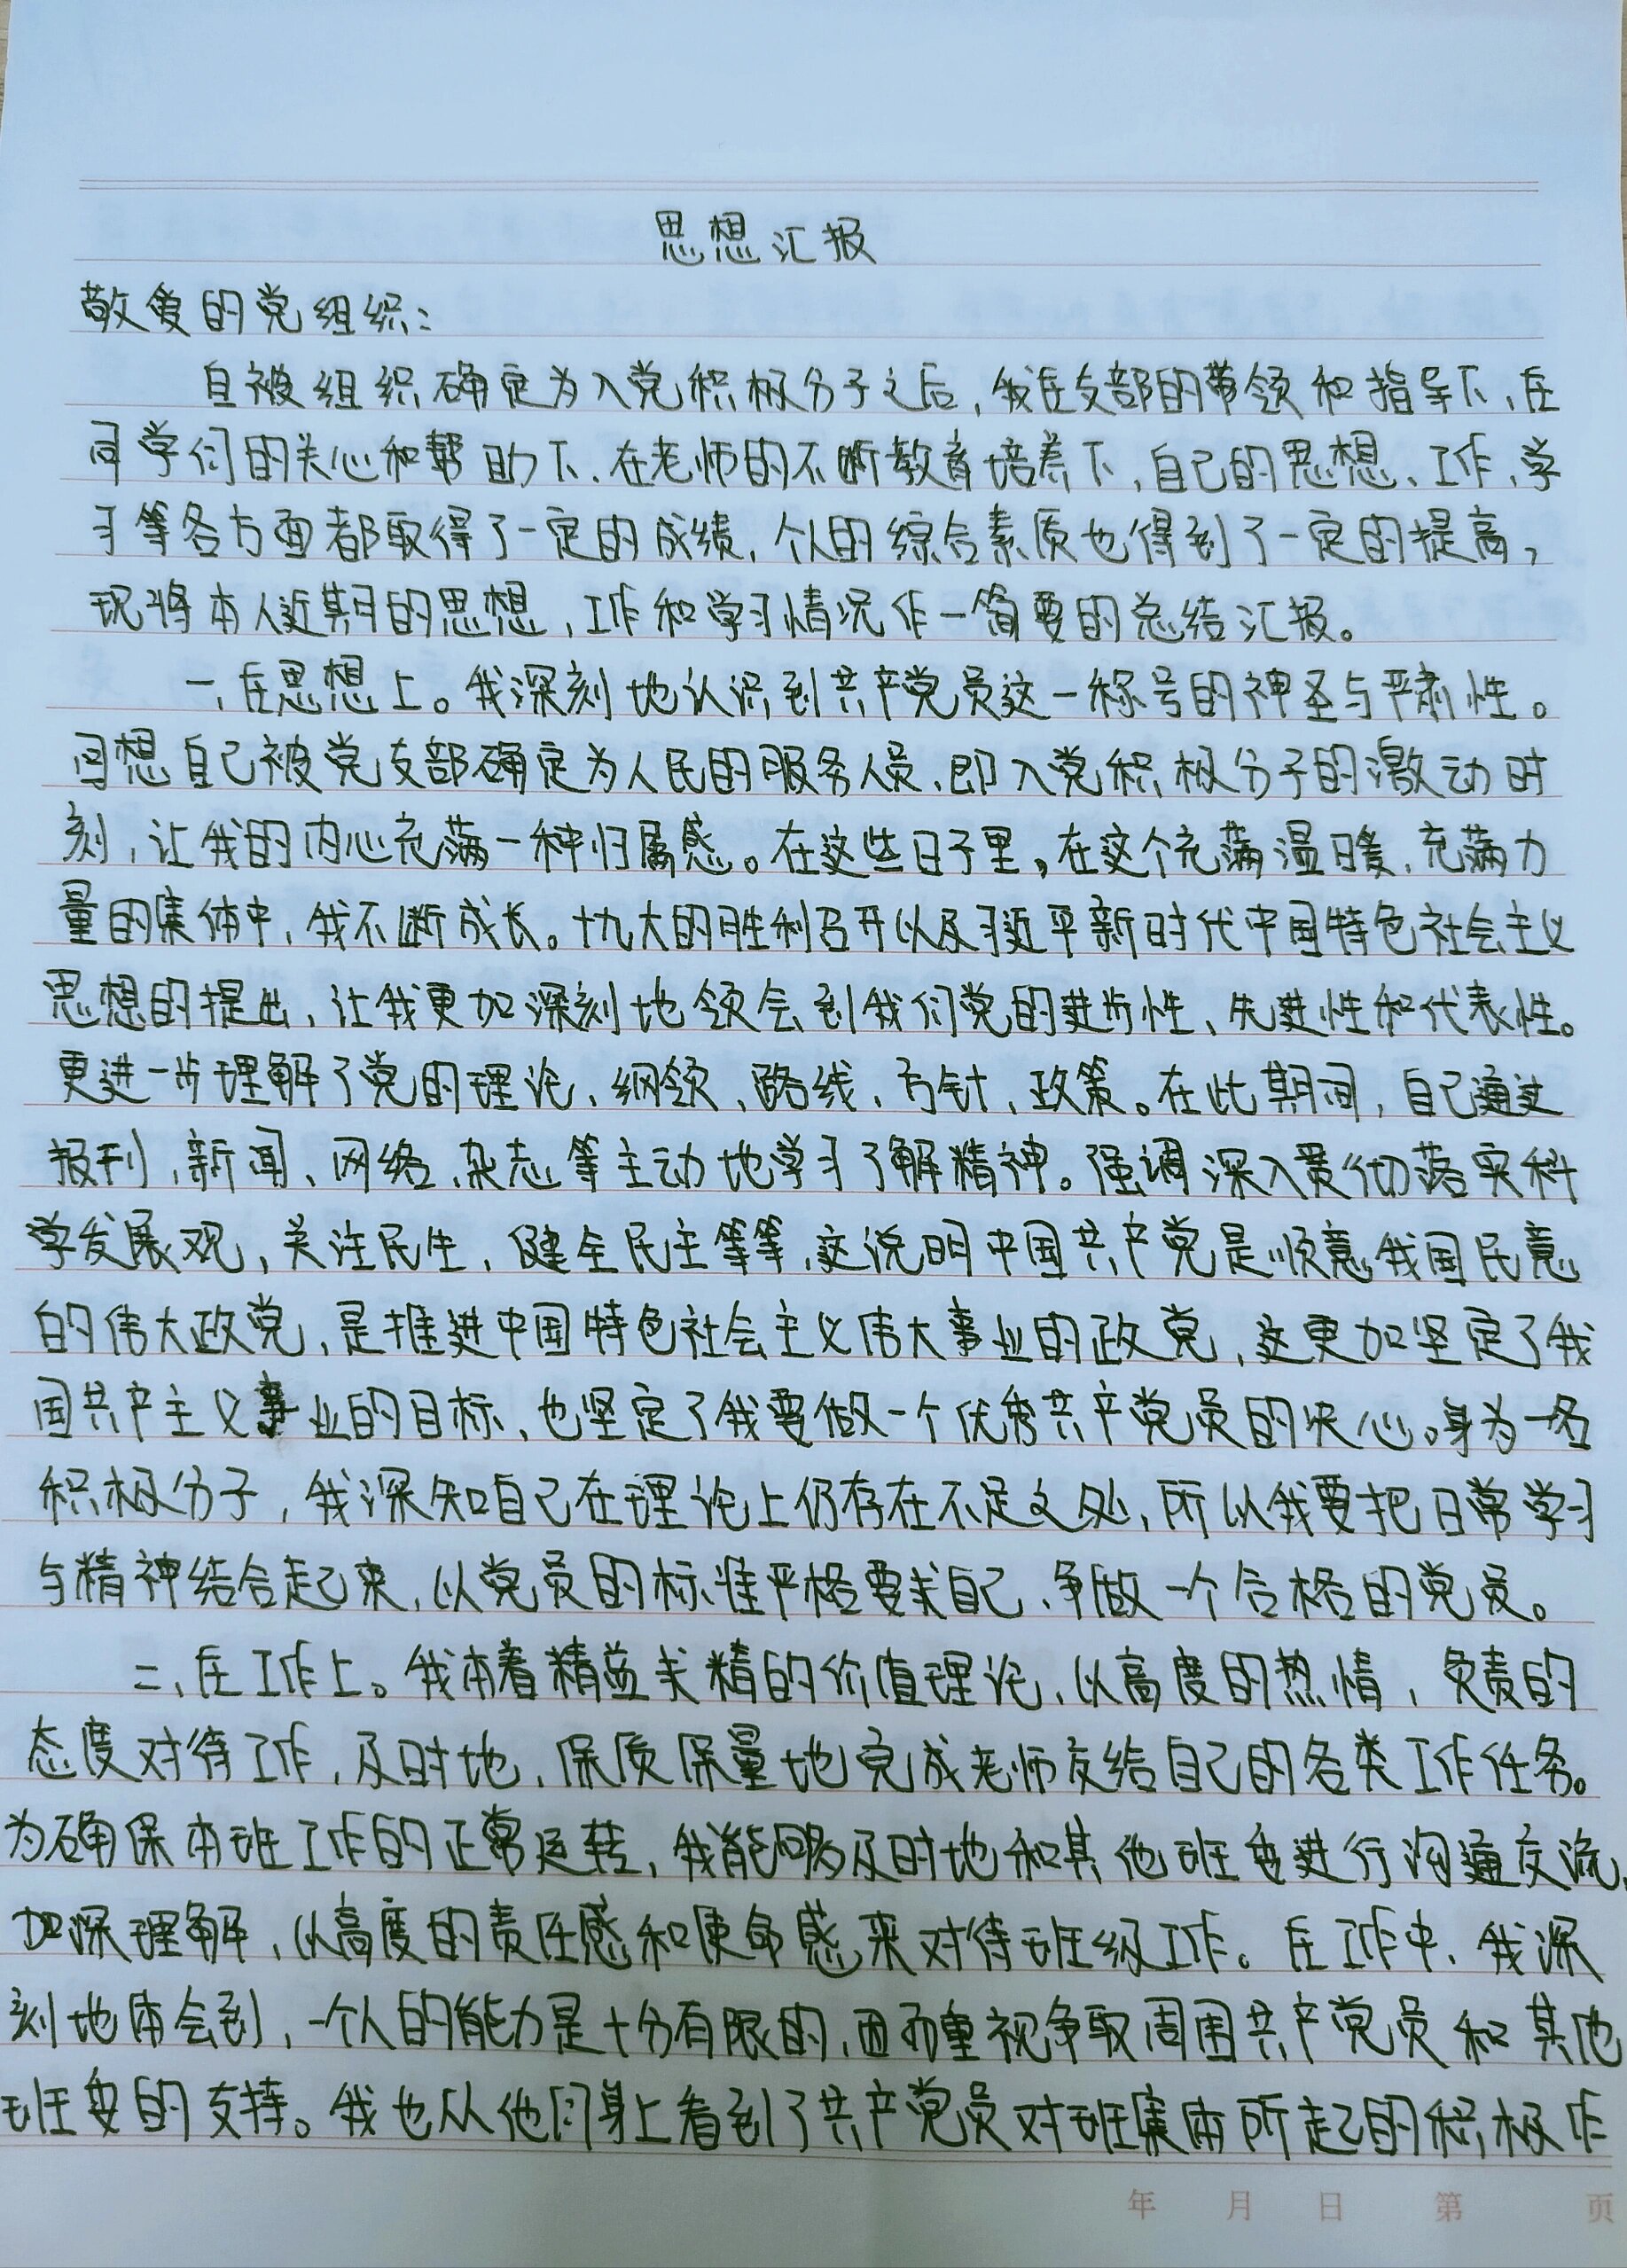 思想汇报
敬爱的党组织：
自被组织确定为入党积极分子之后，我在支部的带领和指导下，在
同学们的关心和帮助下，在老师的不断教育培养下，自己的思想、工作、学
习等各方面都取得了一定的成绩，个人的综合素质也得到了一定的提高，
现将本人近期的思想，工作和学习情况作一简要的总结汇报。
一、在思想上。我深刻地认识到共产党员这一称号的神圣与严肃性。
回想自己被党支部确定为人民的服务人员、即入党积极分子的激动时
刻，让我的内心充满一种归属感。在这些日子里，在这个充满温暖，充满力
量的集体中，我不断成长。十九大的胜利召开以及习近平新时代中国特色社会主义
思想的提出，让我更加深刻地领会到我们党的进步性、先进性和代表性。
更进一步理解了党的理论、纲领、路线、方针、政策。在此期间，自己通过
报刊、新闻、网络、杂志等主动地学习了解精神。强调深入贯彻落实科
学发展观，关注民生，健全民主等等，这说明中国共产党是顺意我国民意
的伟大政党，是推进中国特色社会主义伟大事业的政党，这更加坚定了我
国共产主义事业的目标，也坚定了我要做一个优秀共产党员的决心。身为一名
积极分子，我深知自己在理论上仍存在不足之处，所以我要把日常学习
与精神结合起来，以党员的标准严格要求自己，争做一个合格的党员。
二、在工作上。我本着精益求精的价值理论，以高度的热情，负责的
态度对待工作，及时地，保质保量地完成老师交给自己的各类工作任务。
为确保本班工作的正常运转，我能够及时地和其他班委进行沟通交流，
加深理解，以高度的责任感和使命感来对待班级工作。在工作中，我深
刻地体会到，一个人的能力是十分有限的，因而重视争取周围共产党员和其他
班委的支持。我也从他们身上看到了共产党员对班集体所起的积极作
年 月 日 第 页